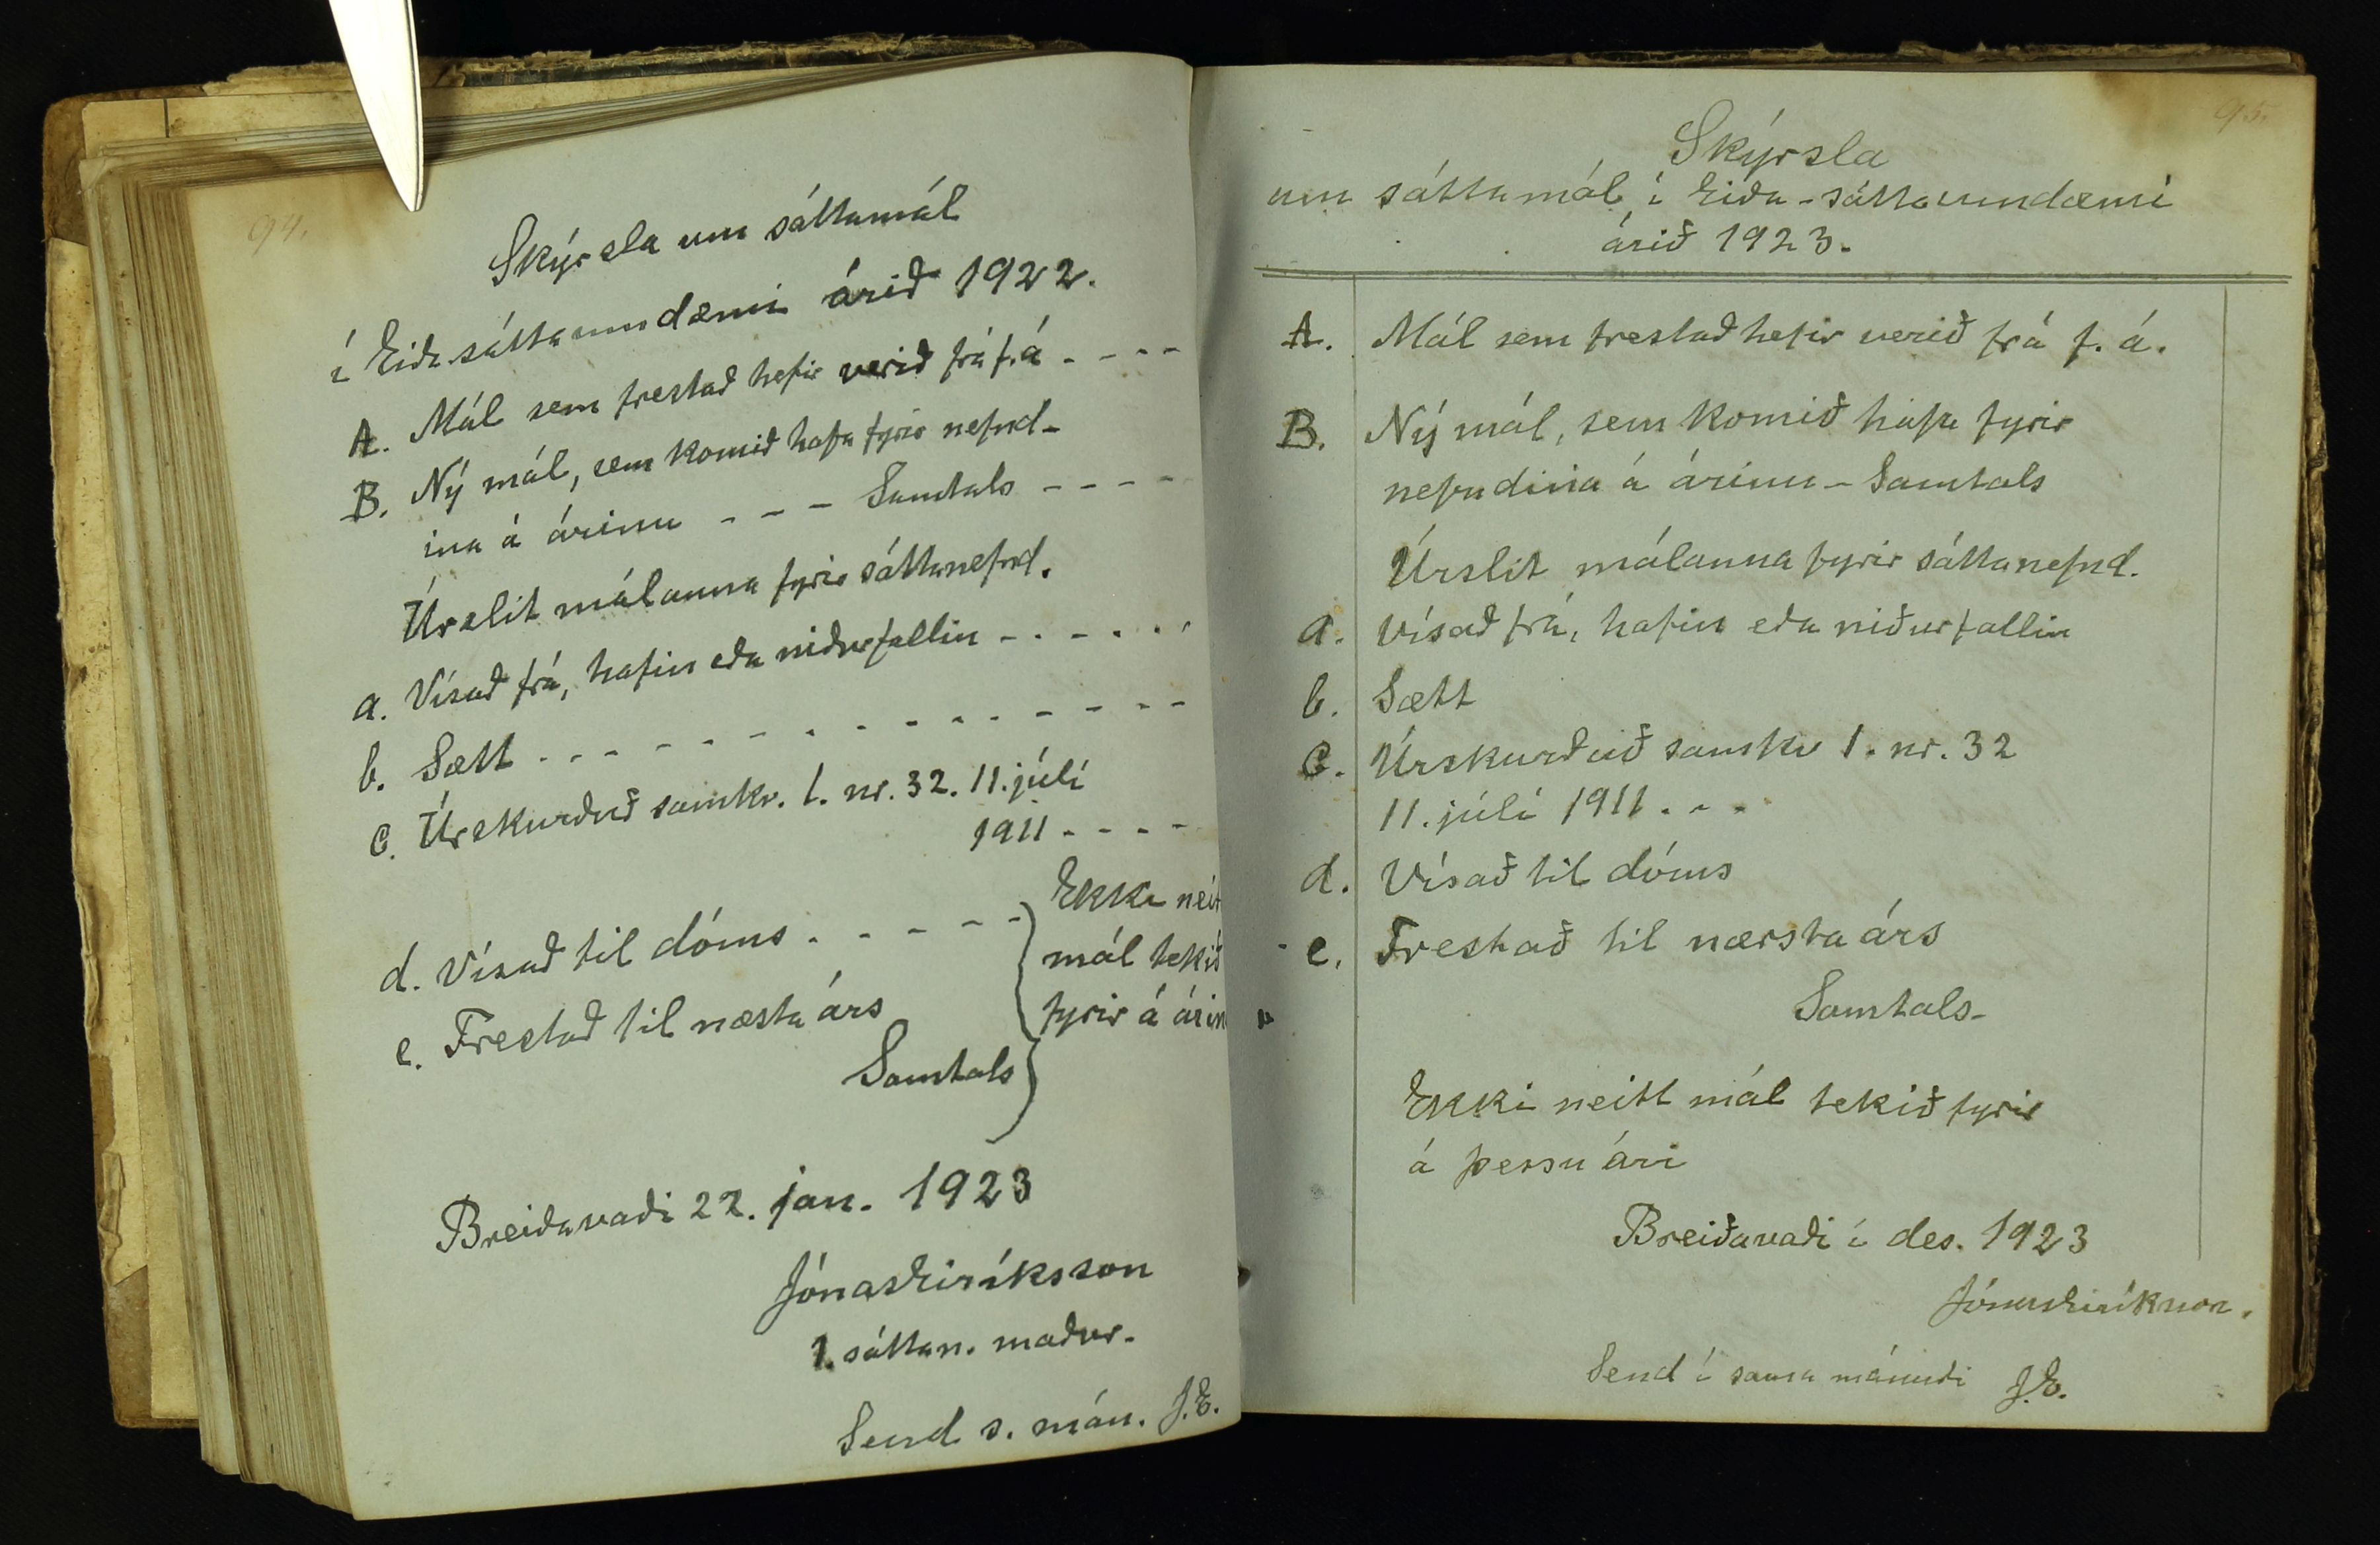 94.
Skýrsla um sáttamál
í Eiða-sáttaumdæmi árið 1922.
A. Mál sem frestað hefir verið frá f. á - - - -
B. Ný mál, sem komið hafa fyrir nefnd-
ina á árinu - - - Samtals - - - -
Úrslit málanna fyrir sáttanefnd.
a. Vísað frá, hafin eða niðurfallin - - - - - -
b. Sætt - - - - - - - - - - - - - -
c. Úrskurðuð samkv. l. nr. 32. 11. júlí
1911 - - - -
d. Vísað til dóms - - - - -
e. Frestað til næsta árs
Samtals
Ekki neit
mál tekið
fyrir á árin
Breiðavaði 22. jan. 1923
Jónas Eiríksson
1. sáttan. maður.
Send s. mán. J.E.
95.
Skýrsla
um sáttamál í Eiða-sáttaumdæmi
árið 1923.
A. Mál sem frestað hefir verið frá f. á.
B. Ný mál, sem komið hafa fyrir
nefndina á árinu - Samtals
Úrslit málanna fyrir sáttanefnd.
a. Vísað frá, hafin eða niðurfallin
b. Sætt
c. Úrskurðuð samkv l. nr. 32
11. júlí 1911. - -
d. Vísað til dóms
e. Frestað til næsta árs
Samtals-
Ekki neitt mál tekið fyrir
á þessu ári
Breiðavaði í des. 1923
Jónas Eiríksson.
Send í sama mánuði J.E.